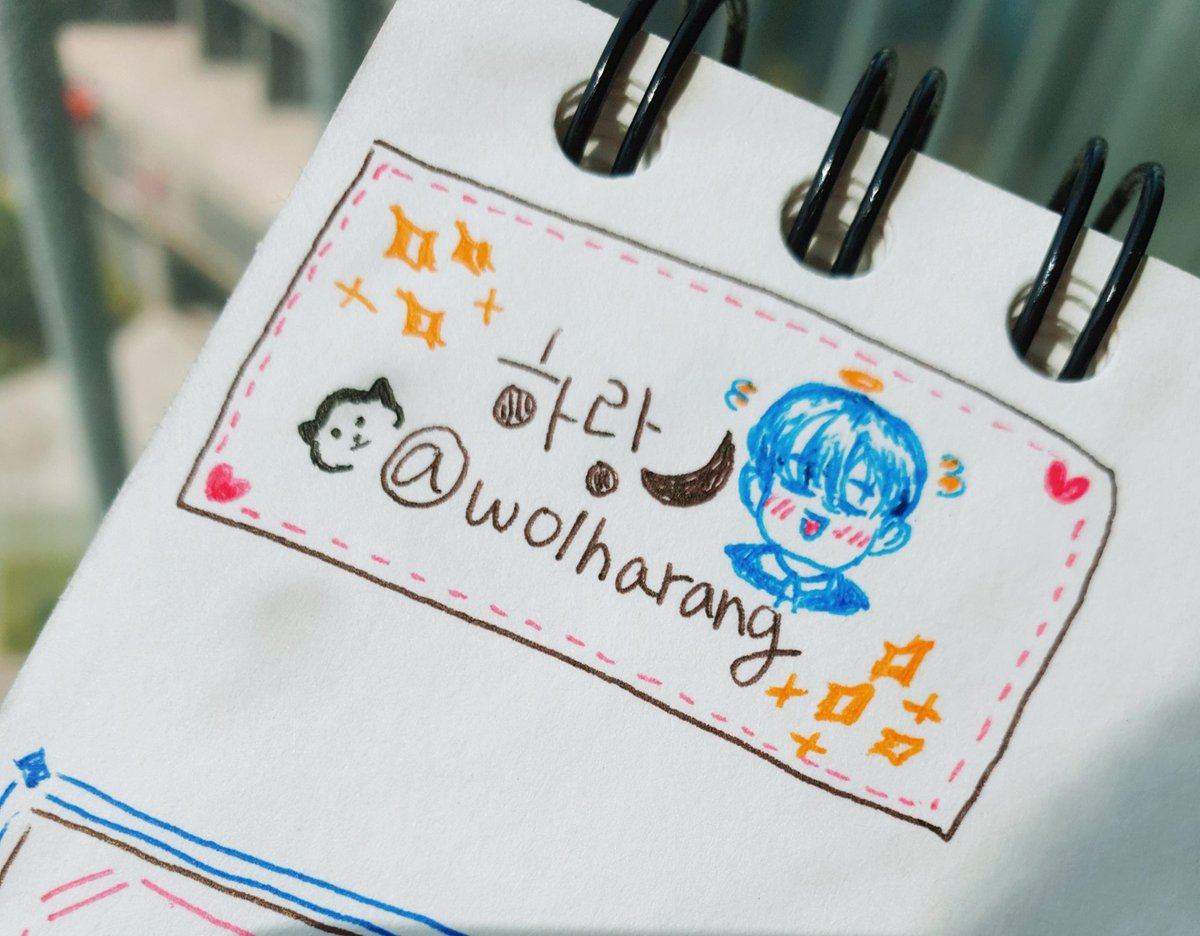 하랑
@wolharang